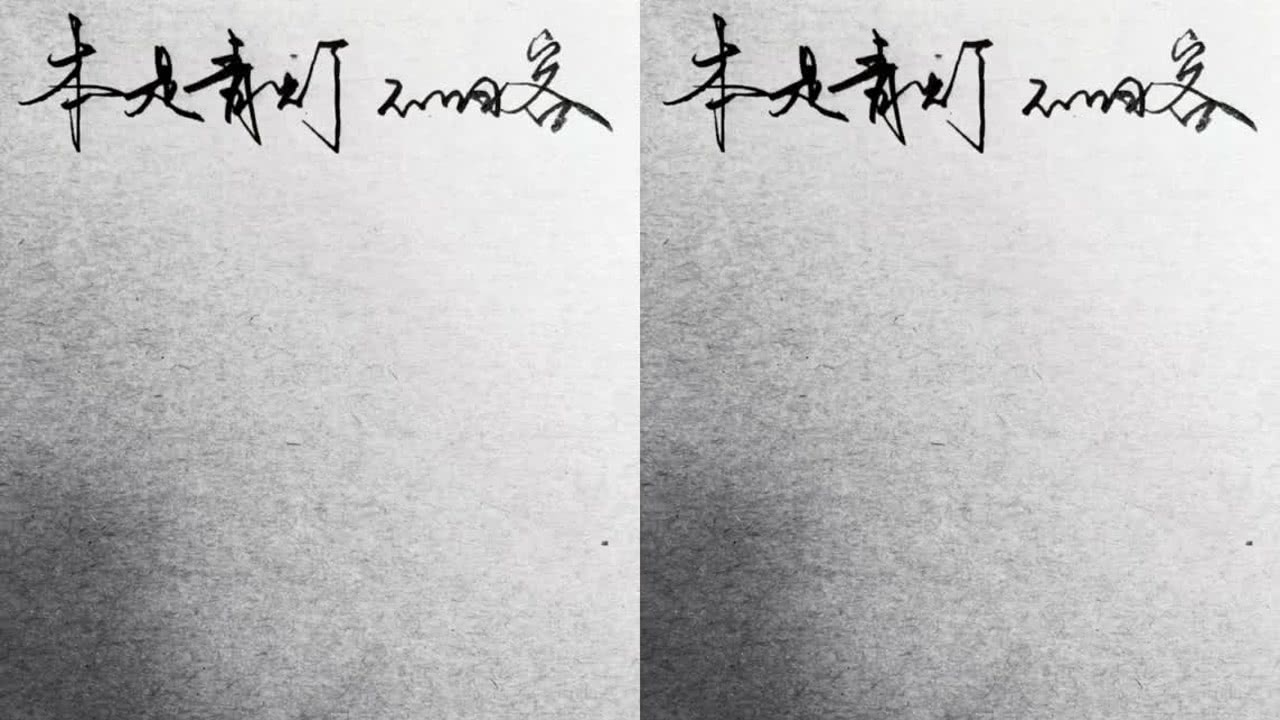 本是青灯不归客
本是青灯不归客